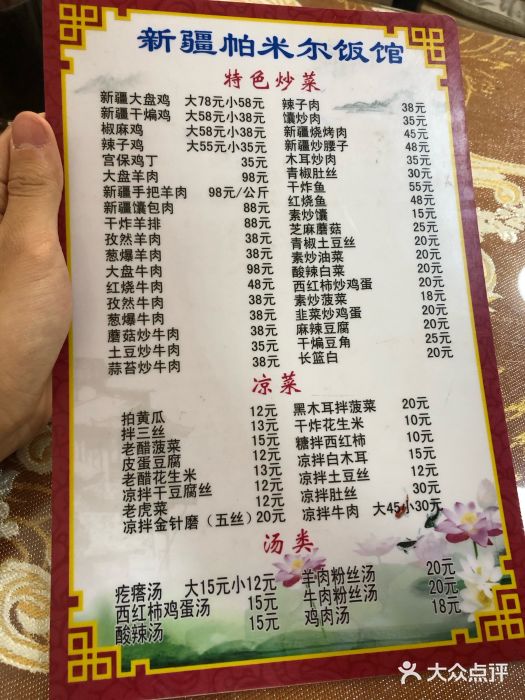 新疆帕米尔饭馆
特色炒菜
新疆大盘鸡 大78元小58元
新疆干煸鸡 大58元小38元
椒麻鸡 大58元小38元
辣子鸡 大55元小35元
宫保鸡丁 35元
大盘羊肉 98元
新疆手把羊肉 98元/公斤
新疆馕包肉 88元
干炸羊排 88元
孜然羊肉 38元
葱爆羊肉 38元
大盘牛肉 98元
红烧牛肉 48元
孜然牛肉 38元
葱爆牛肉 38元
蘑菇炒牛肉 38元
土豆炒牛肉 35元
蒜苔炒牛肉 38元
辣子肉 38元
馕炒肉 35元
新疆烧烤肉 45元
新疆炒腰子 48元
木耳炒肉 35元
青椒肚丝 30元
干炸鱼 55元
红烧鱼 48元
素炒馕 15元
芝麻蘑菇 25元
青椒土豆丝 20元
素炒油菜 20元
酸辣白菜 20元
西红柿炒鸡蛋 20元
素炒菠菜 18元
韭菜炒鸡蛋 20元
麻辣豆腐 20元
干煸豆角 25元
长篮白 20元
凉菜
拍黄瓜 12元
拌三丝 13元
老醋菠菜 15元
皮蛋豆腐 12元
老醋花生米 13元
凉拌干豆腐丝 12元
老虎菜 12元
凉拌金针磨（五丝）20元
黑木耳拌菠菜 20元
干炸花生米 10元
糖拌西红柿 10元
凉拌白木耳 15元
凉拌土豆丝 12元
凉拌肚丝 30元
凉拌牛肉 大45小30元
汤类
疙瘩汤 大15元小12元
西红柿鸡蛋汤 15元
酸辣汤 15元
羊肉粉丝汤 20元
牛肉粉丝汤 20元
鸡肉汤 18元
大众点评